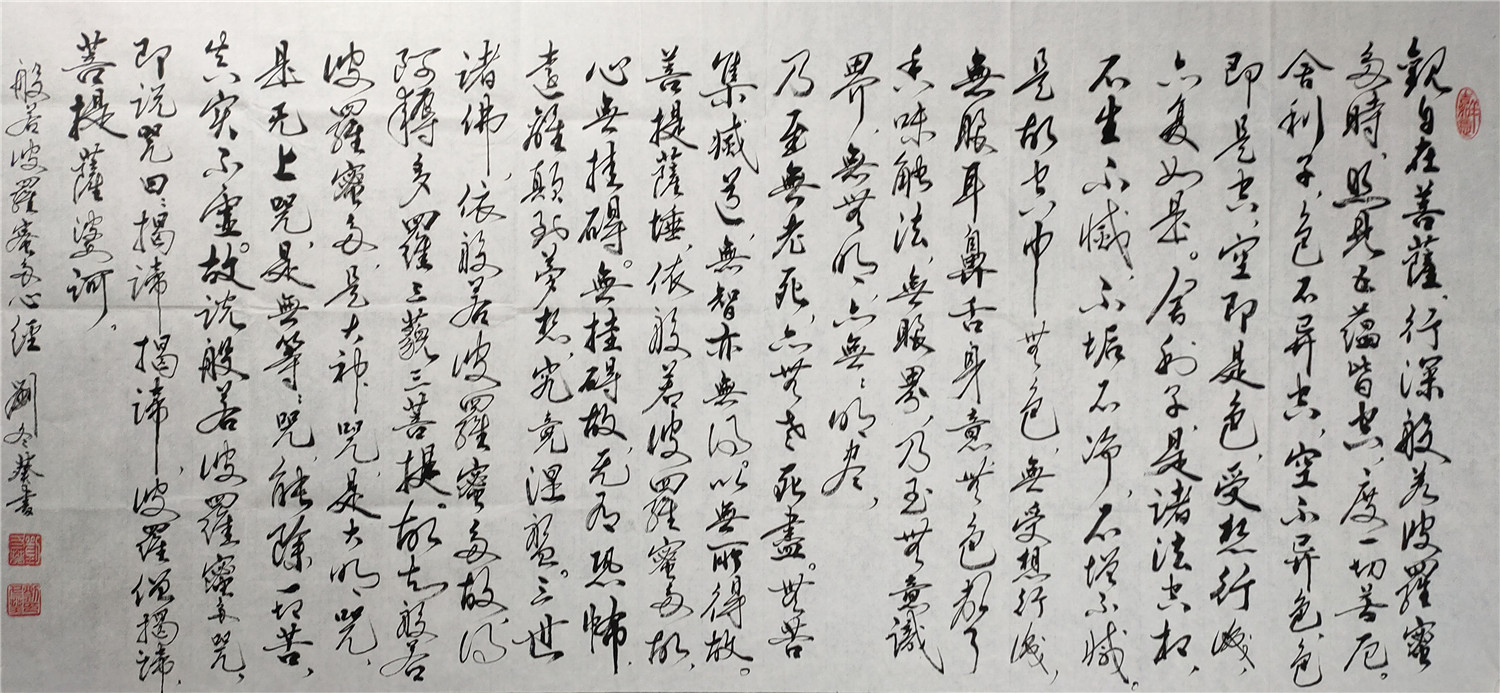 觀自在菩薩，行深般若波羅蜜
多時，照見五蘊皆空，度一切苦厄。
舍利子，色不异空，空不异色，色
即是空，空即是色，受想行識，
亦复如是。舍利子，是諸法空相，
不生不滅，不垢不净，不增不減。
是故空中無色，無受想行識，
無眼耳鼻舌身意，無色聲
香味触法，無眼界，乃至無意識
界，無無明，亦無〻明盡，
乃至無老死，亦無老死盡。無苦
集滅道，無智亦無得。以無所得故。
菩提薩埵，依般若波羅蜜多故，
心無挂碍。無挂碍故，无有恐怖，
遠離顛倒夢想，究竟涅槃。三世
諸佛，依般若波羅蜜多故，得
阿耨多羅三藐三菩提。故知般若
波羅蜜多，是大神咒，是大明咒，
是无上咒，是無等〻咒，能除一切苦，
真实不虚。故説般若波羅蜜多咒，
即説咒曰：揭諦揭諦，波羅僧揭諦，
菩提薩婆訶。
般若波羅蜜多心經 劉冬葵書